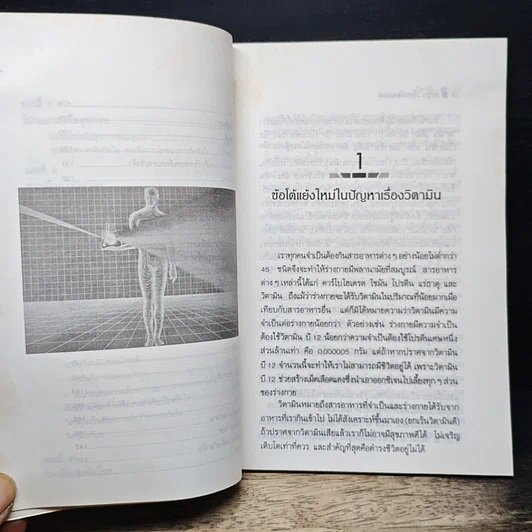 1
ข้อโต้แย้งใหม่ในปัญหาเรื่องวิตามิน
เราทุกคนจำเป็นต้องกินสารอาหารต่างๆ อย่างน้อยไม่ต่ำกว่า
45 ชนิดจึงจะทำให้ร่างกายมีพลานามัยที่สมบูรณ์ สารอาหาร
ต่างๆ เหล่านี้ได้แก่ คาร์โบไฮเดรต ไขมัน โปรตีน แร่ธาตุ และ
วิตามิน ถึงแม้ว่าร่างกายจะได้รับวิตามินในปริมาณที่น้อยมากเมื่อ
เทียบกับสารอาหารอื่น แต่ก็มิได้หมายความว่าวิตามินมีความ
จำเป็นต่อร่างกายน้อยกว่า ตัวอย่างเช่น ร่างกายมีความจำเป็น
ต้องใช้วิตามิน บี 12 น้อยกว่าความจำเป็นต้องใช้โปรตีนเศษหนึ่ง
ส่วนล้านเท่า คือ 0.000005 กรัม แต่ถ้าหากปราศจากวิตามิน
บี 12 จำนวนนี้จะทำให้เราไม่สามารถมีชีวิตอยู่ได้ เพราะวิตามิน
บี 12 ช่วยสร้างเม็ดเลือดแดงซึ่งนำเอาออกซิเจนไปเลี้ยงทุกๆ ส่วน
ของร่างกาย
วิตามินหมายถึงสารอาหารที่จำเป็นและร่างกายได้รับจาก
อาหารที่เรากินเข้าไป ไม่ได้สังเคราะห์ขึ้นมาเอง (ยกเว้นวิตามินดี)
ถ้าปราศจากวิตามินเสียแล้วเราก็ไม่อาจมีสุขภาพดีได้ ไม่เจริญ
เติบโตเท่าที่ควร และสำคัญที่สุดคือดำรงชีวิตอยู่ไม่ได้